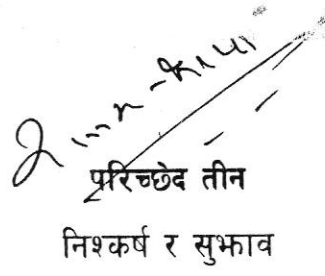 परिच्छेद तीन
निश्कर्ष र सुझाव